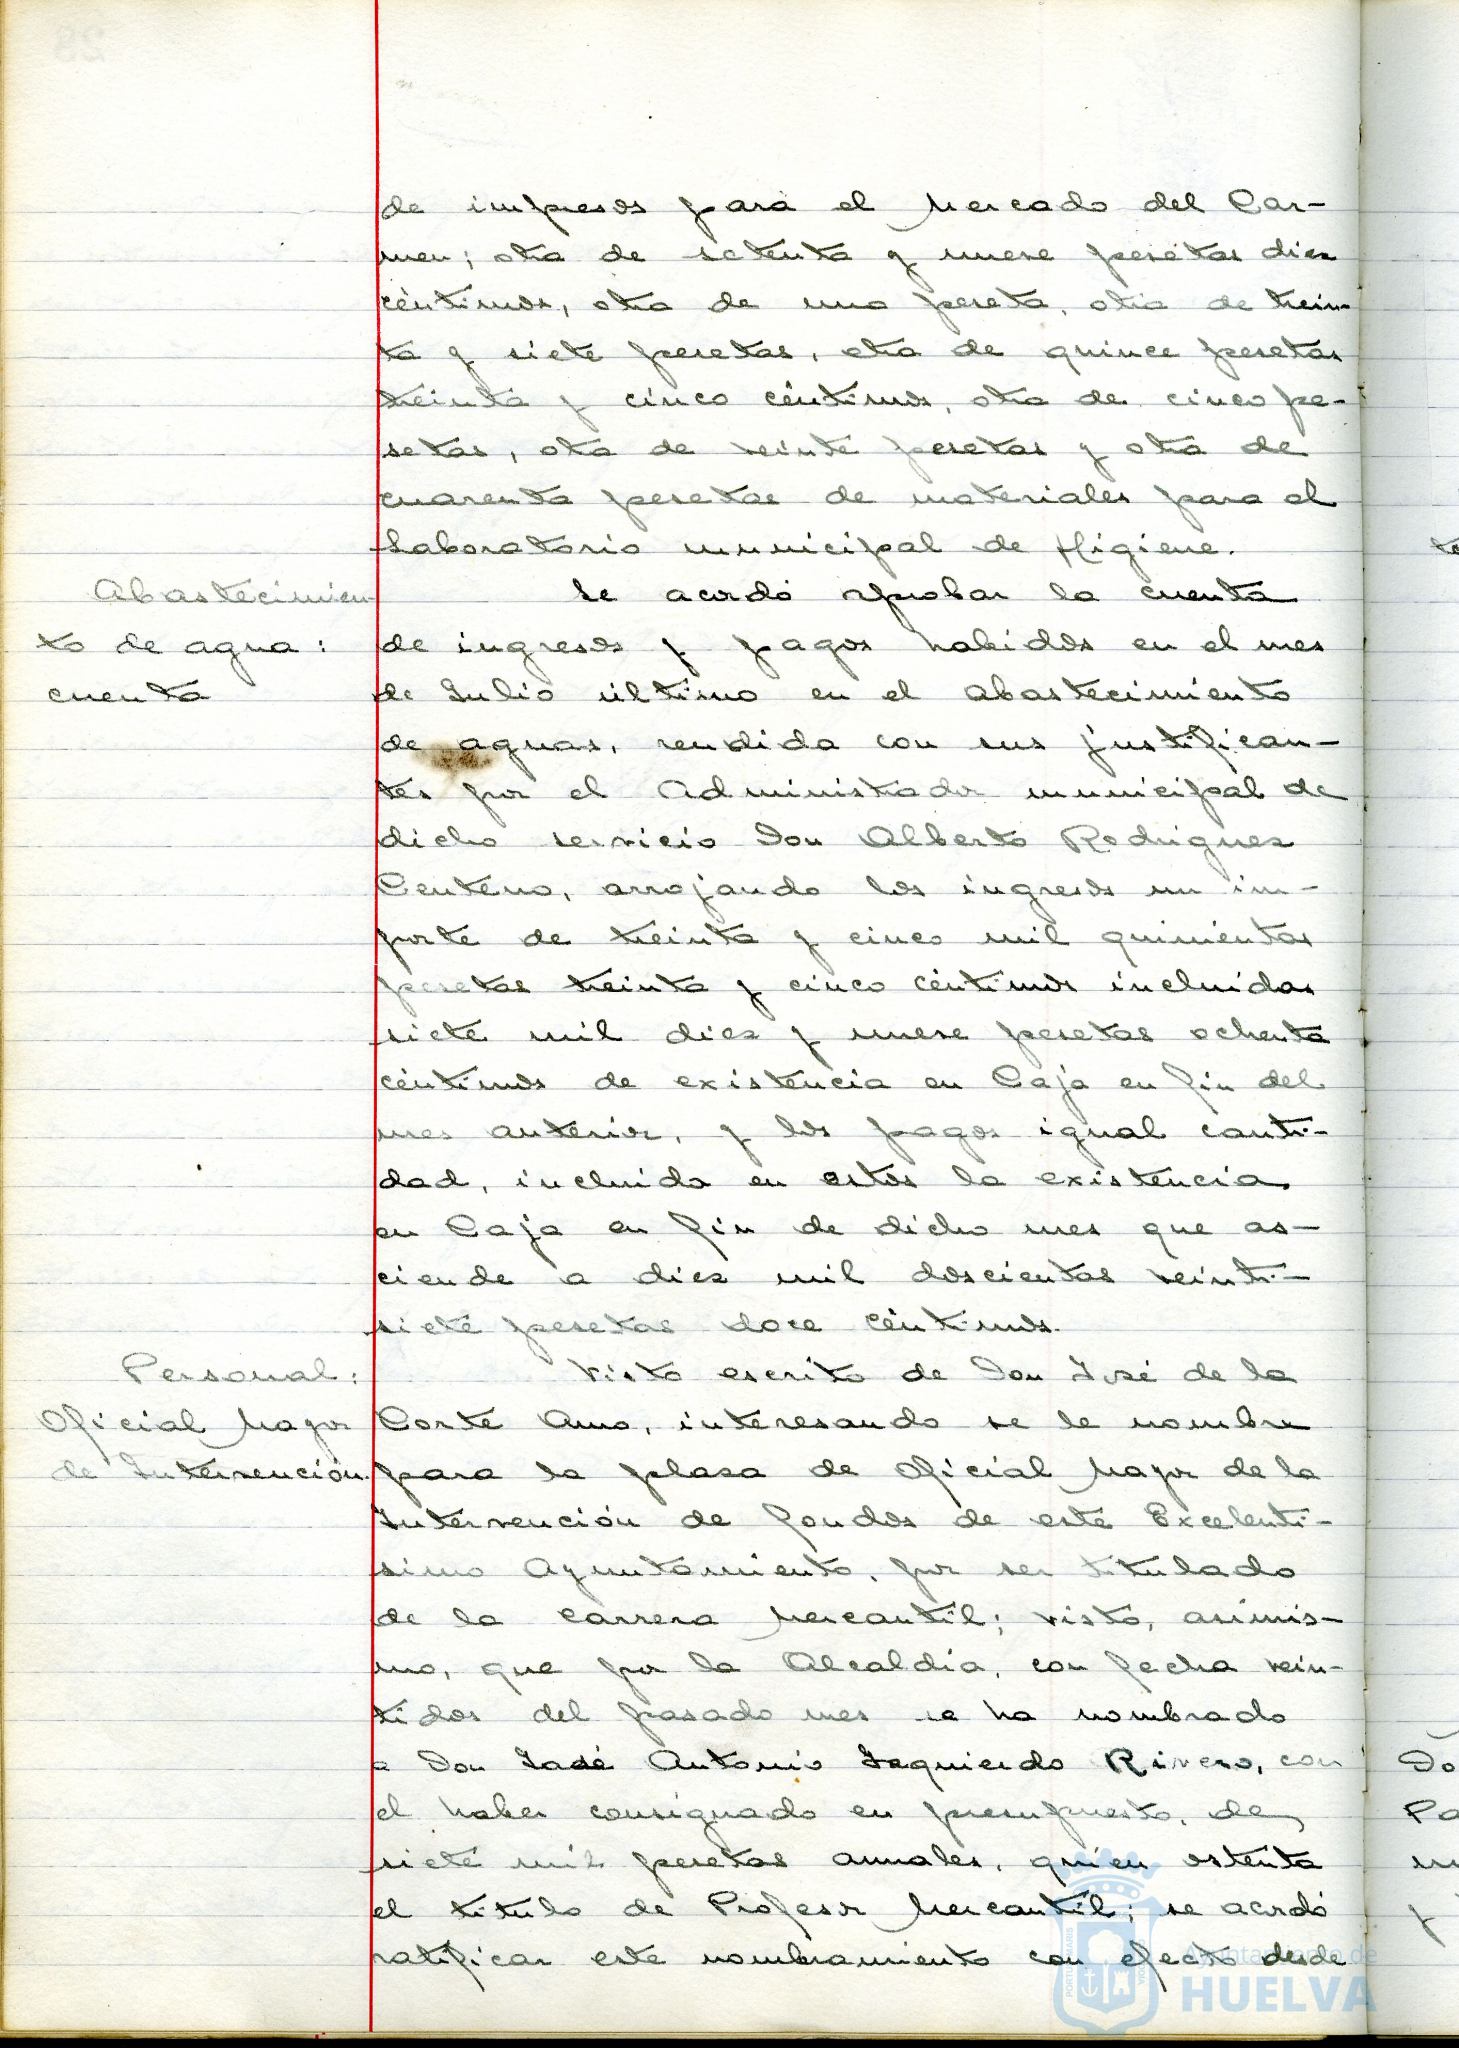 de impresos para el Mercado del Car-
men; otra de setenta y nueve pesetas diez
céntimos, otra de una peseta, otra de trein-
ta y siete pesetas, otra de quince pesetas
treinta y cinco céntimos, otra de cinco pe-
setas, otra de veinte pesetas y otra de
cuarenta pesetas de materiales para el
Laboratorio municipal de Higiene.
Abastecimien-
to de agua:
cuenta
Se acordó aprobar la cuenta
de ingresos y pagos habidos en el mes
de Julio último en el abastecimiento
de aguas, rendida con sus justifican-
tes por el Administrador municipal de
dicho servicio Don Alberto Rodriguez
Centeno, arrojando los ingresos un im-
porte de treinta y cinco mil quinientas
pesetas treinta y cinco céntimos incluidas
siete mil diez y nueve pesetas ochenta
céntimos de existencia en Caja en fin del
mes anterior, y los pagos igual canti-
dad, incluida en estos la existencia
en Caja en fin de dicho mes que as-
ciende a diez mil doscientas veinti-
siete pesetas doce céntimos.
Personal:
Oficial Mayor
de Intervención.
Visto escrito de Don José de la
Corte Amo, interesando se le nombre
para la plaza de Oficial Mayor de la
Intervención de fondos de este Excelentí-
simo Ayuntamiento, por ser titulado
de la carrera Mercantil; visto, asimis-
mo, que por la Alcaldía, con fecha vein-
tidos del pasado mes se ha nombrado
a Don José Antonio Izquierdo Rivero, con
el haber consignado en presupuesto, de
siete mil pesetas anuales, quien ostenta
el título de Profesor Mercantil; se acordó
ratificar este nombramiento con efecto desde
Ayuntamiento de
HUELVA